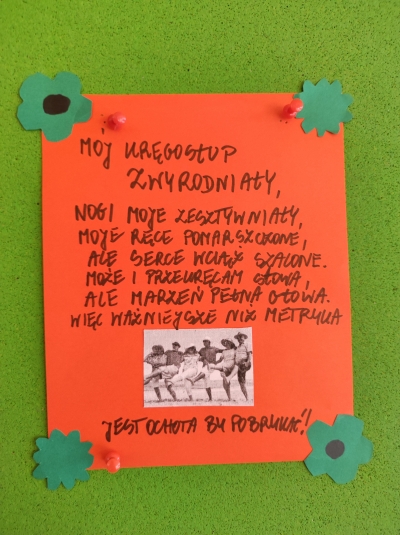 MÓJ KRĘGOSŁUP
ZWYRODNIAŁY,
NOGI MOJE ZESZTYWNIAŁY,
MOJE RĘCE POMARSZCZONE,
ALE SERCE WCIĄŻ SZALONE.
MOŻE I PRZEKRĘCAM SŁOWA,
ALE MARZEŃ PEŁNA GŁOWA.
WIĘC WAŻNIEJSZE NIŻ METRYKA
JEST OCHOTA BY POBRYKAĆ!